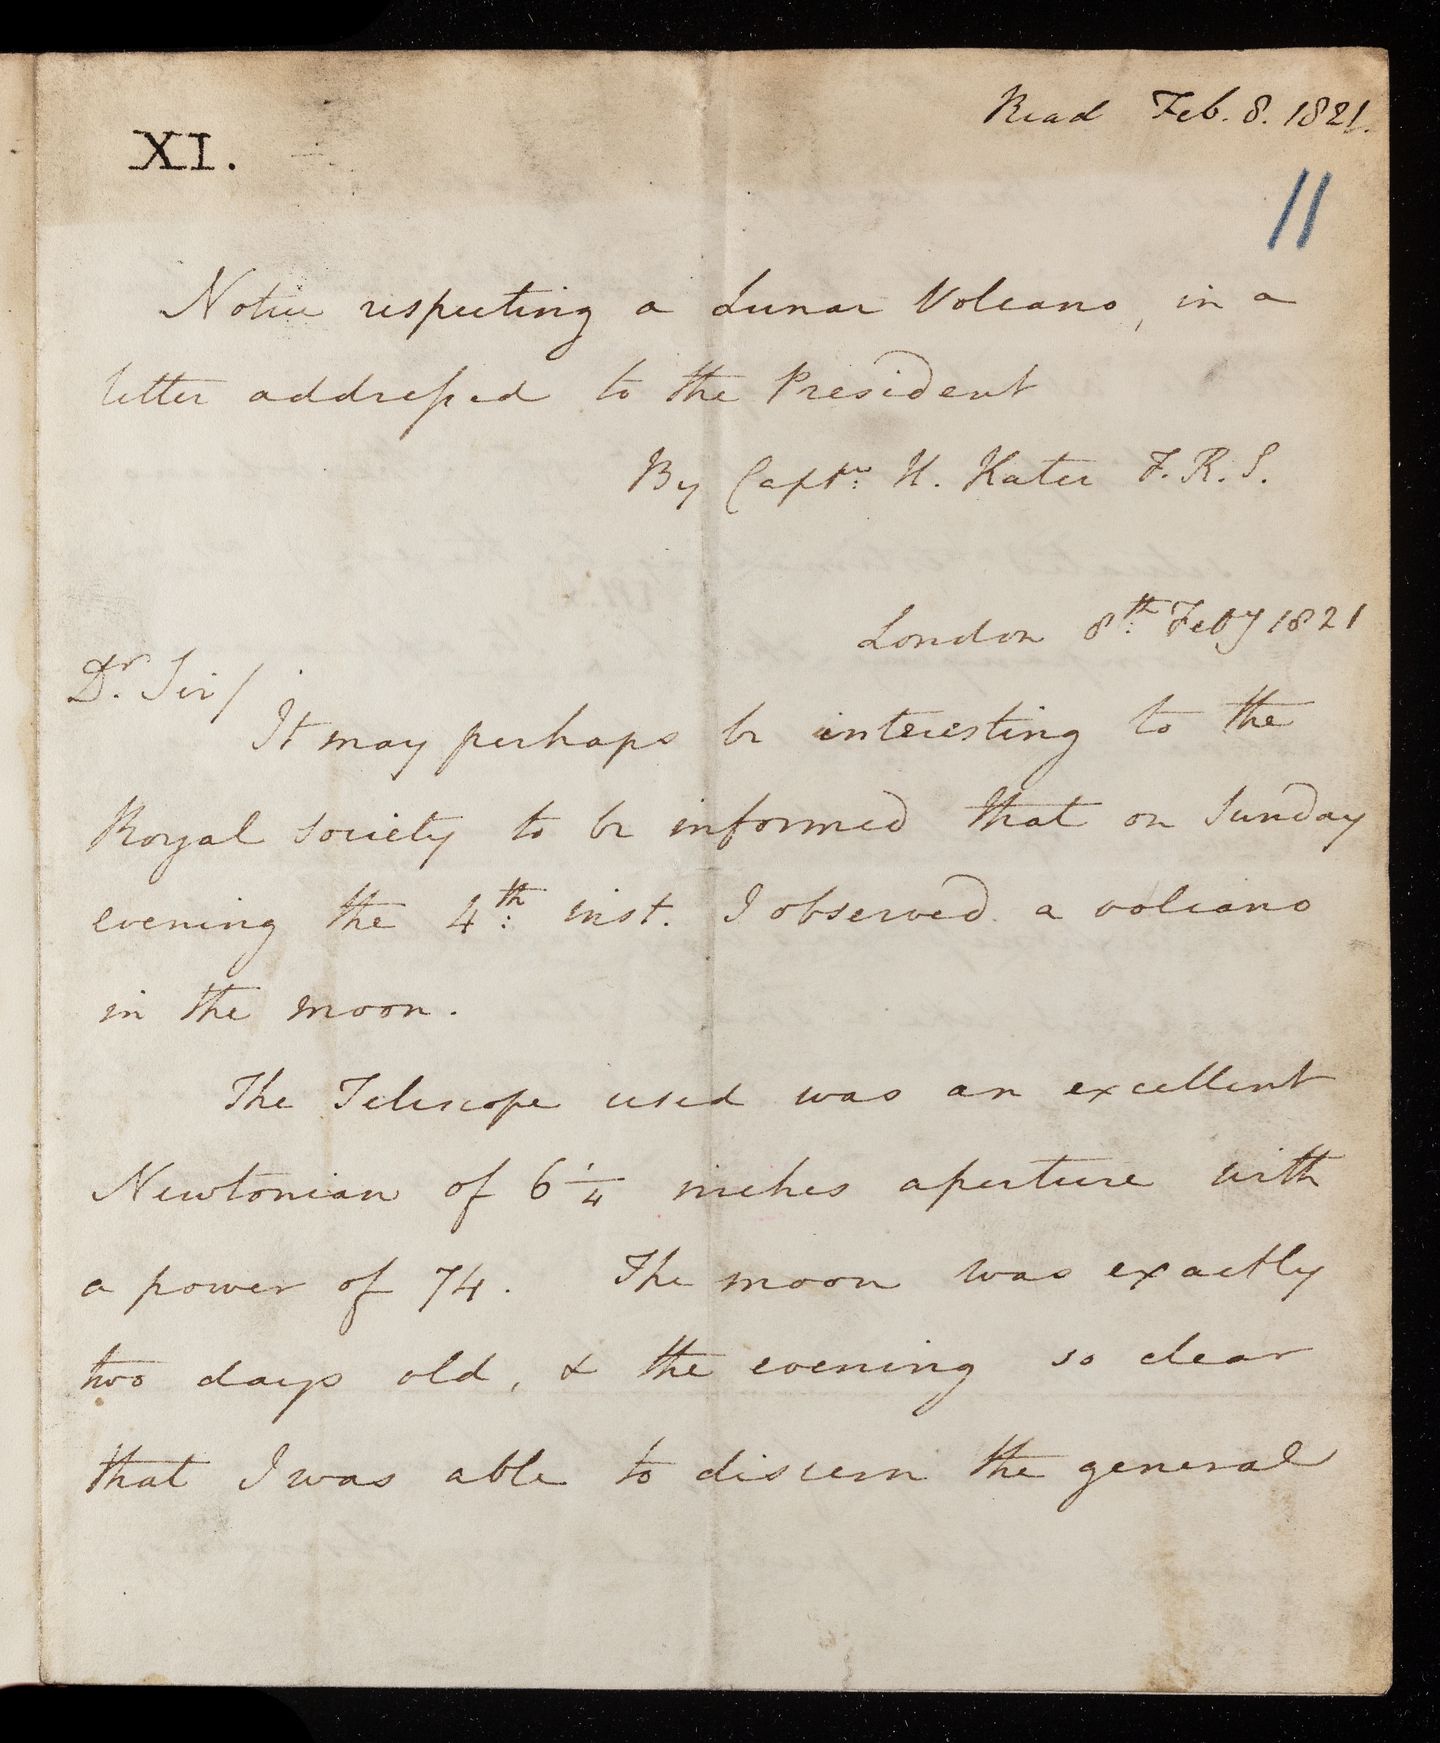 Read Feb. 8. 1821.
XI.
11
Notice respecting a Lunar Volcano, in a
letter addressed to the President
By Captn: H. Kater F.R.S.
London 8th: Feby 1821
Dr. Sir/
It may perhaps be interesting to the
Royal Society to be informed that on Sunday
evening the 4th: inst. I observed a volcano
in the moon.
The Telescope used was an excellent
Newtonian of 6 1/4 inches aperture with
a power of 74. The moon was exactly
two days old, & the evening so clear
that I was able to discern the general